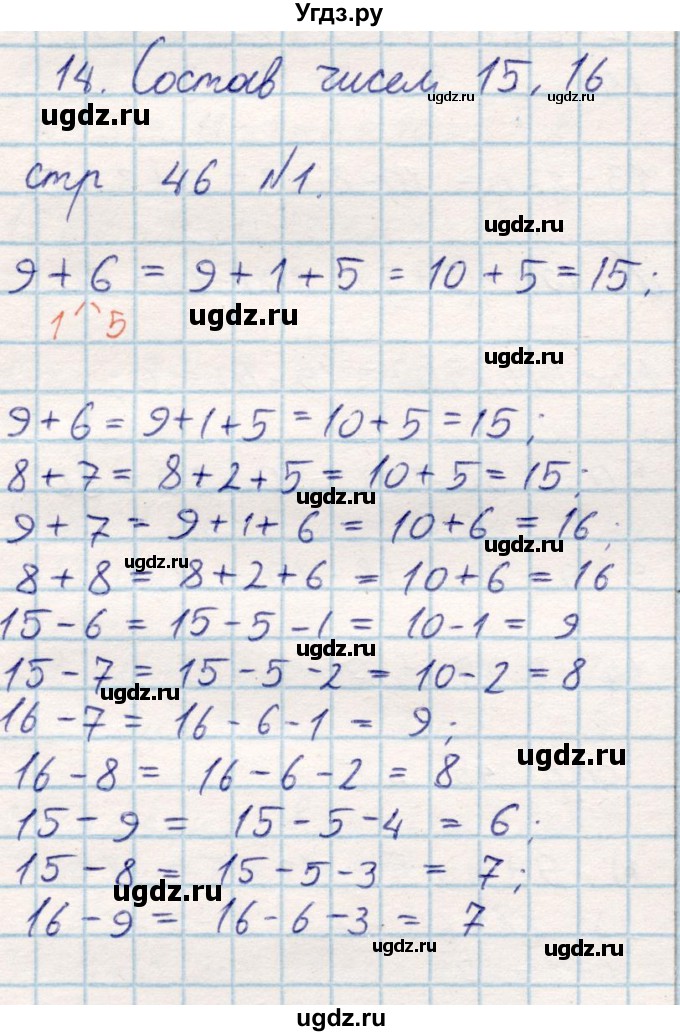 Угдз.ру
14. Состав чисел 15, 16
ugdz.ru
ugdz.ru
стр 46 №1.
ugdz.ru
9 + 6 = 9 + 1 + 5 = 10 + 5 = 15;
1 5
ugdz.ru
ugdz.ru
9 + 6 = 9 + 1 + 5 = 10 + 5 = 15;
8 + 7 = 8 + 2 + 5 = 10 + 5 = 15;
ugdz.ru
9 + 7 = 9 + 1 + 6 = 10 + 6 = 16;
ugdz.ru
ugdz.ru
8 + 8 = 8 + 2 + 6 = 10 + 6 = 16
15 - 6 = 15 - 5 - 1 = 10 - 1 = 9
ugdz.ru
15 - 7 = 15 - 5 - 2 = 10 - 2 = 8
ugdz.ru
16 - 7 = 16 - 6 - 1 = 9;
ugdz.ru
16 - 8 = 16 - 6 - 2 = 8
15 - 9 = 15 - 5 - 4 = 6;
15 - 8 = 15 - 5 - 3 = 7;
ugdz.ru
16 - 9 = 16 - 6 - 3 = 7
ugdz.ru
ugdz.ru
ugdz.ru